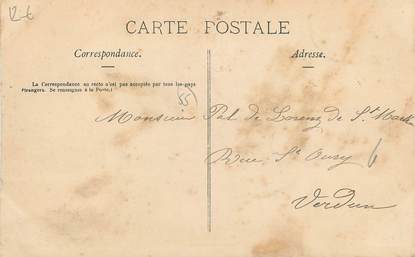 12-6
CARTE POSTALE
Correspondance.
Adresse.
La Correspondance au recto n'est pas acceptée par tous les pays
étrangers. Se renseigner à la Poste.)
55
Monsieur Pol de Lorenz de St
Rue St Oury
6
Verdun